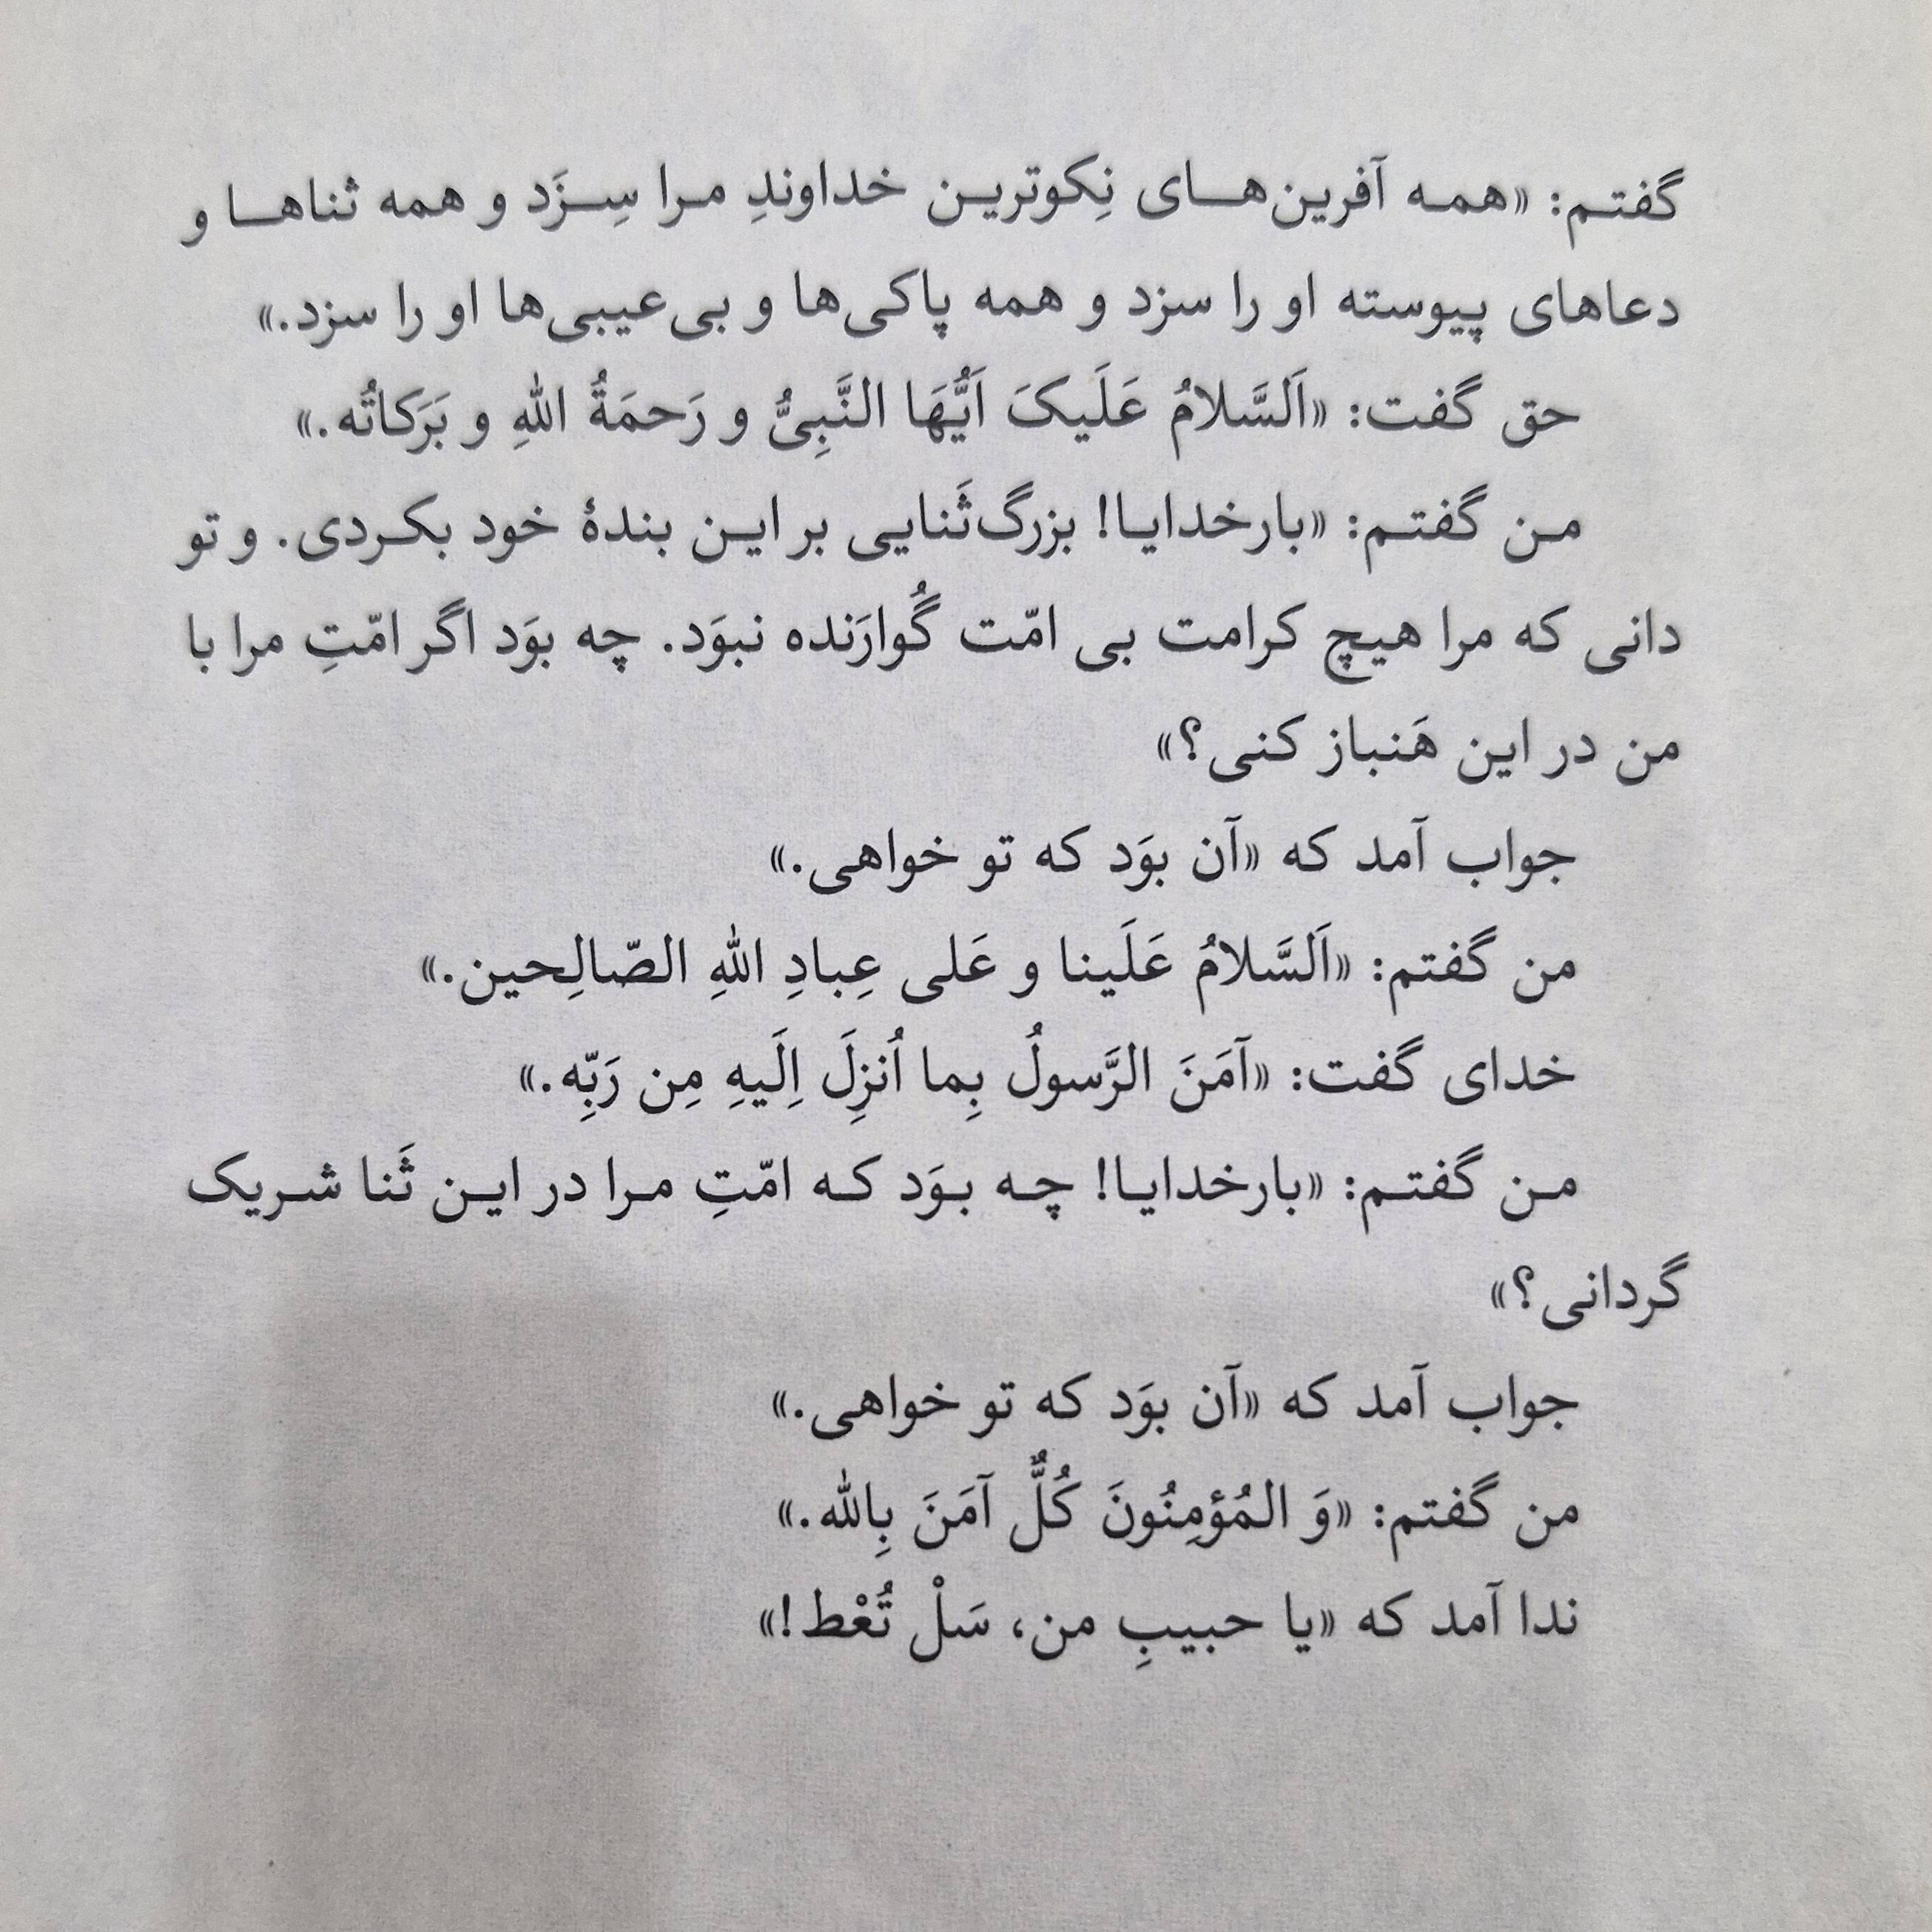 گفتم: «همه آفرین‌های نِکوترین خداوندِ مرا سِزَد و همه ثناها و
دعاهای پیوسته او را سزد و همه پاکی‌ها و بی‌عیبی‌ها او را سزد.»
حق گفت: «اَلسَّلامُ عَلَیکَ اَیُّهَا النَّبِیُّ و رَحمَةُ اللهِ و بَرَکاتُه.»
من گفتم: «بارخدایا! بزرگ‌ثَنایی بر این بندهٔ خود بکردی. و تو
دانی که مرا هیچ کرامت بی امّت گُوارَنده نبوَد. چه بوَد اگر امّتِ مرا با
من در این هَنباز کنی؟»
جواب آمد که «آن بوَد که تو خواهی.»
من گفتم: «اَلسَّلامُ عَلَینا و عَلی عِبادِ اللهِ الصّالِحین.»
خدای گفت: «آمَنَ الرَّسولُ بِما اُنزِلَ اِلَیهِ مِن رَبِّه.»
من گفتم: «بارخدایا! چه بوَد که امّتِ مرا در این ثَنا شریک
گردانی؟»
جواب آمد که «آن بوَد که تو خواهی.»
من گفتم: «وَ المُؤمِنُونَ کُلٌّ آمَنَ بِالله.»
ندا آمد که «یا حبیبِ من، سَلْ تُعْط!»